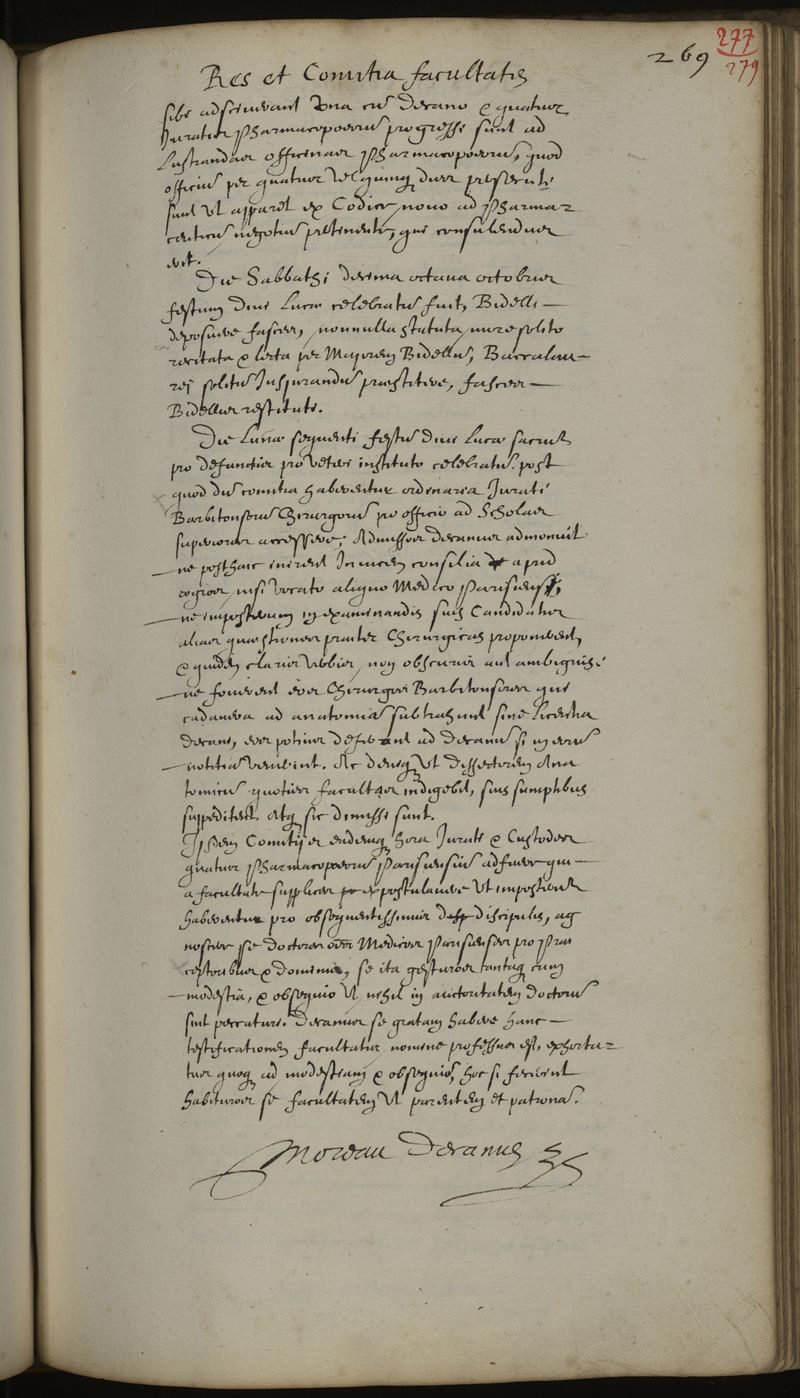 269
277
279
Res et Comitia facultatis
sibi adsciverant una cū decano & quatuor
Juratis Pharmacopoeorū progressi sunt ad
Lustrandas officinas Pharmacopoeorū, quod
officiū per quatuor vel quinq dies prosecuti
sunt ut apparet ex Codice novo ad Pharma-
ceuticū negotiū pertinente, qui consulendus
erit.
Die Sabbathi decima octava octobris
festum divi Lucæ celebratū fuit, Bidelli
deposuere fasces, nonnulla statuta more solito
recitata & lecta per Majorem Bidellū, Baccalau-
rei solitū Jusjurandū præstitere, fasces
Bidellis restituti.
Die Lunæ sequenti festū divi Lucæ sacrū
pro defunctis pro veteri instituto celebratū. post
quod dū comitia haberentur ordinaria Jurati
Barbitonsorū Chirurgorū pro officio ad Scholas
superiores accessere; Admissos decanus admonuit
ne posthac inirent Invicem consilia apud
ægros, nisi vocato aliquo Medico Parisiensi,
ne imposterum in examinandis suis Candidatis
alias quæstiones præter Chirurgicas proponerent,
& quidem claris verbis, non obscuris aut ambiguis
ne foverent eos Chirurgos Barbitonsores qui
cadavera ad anatomiā subtrahunt sine licentia
decani, eos potius deferant ad decanū si in eorū
notitiā venerint. Ac deniq ut dissectorem Ana
tomicū quoties facultas indigebit, suis sumptibus
suppeditent. Atq sic dimissi sunt.
Iisdem Comitijs eademq hora Jurati & Custodes
quatuor Pharmacopoeorū Parisiensiū adfuere qui
a facultate supplices postulavere ut imposterū
haberentur pro obsequentissimis discipulis, ac
nossere se doctores Medicos Parisienses pro Præ
ceptoribus & dominis, se ita gesturos tantaq cum
modestia, & obsequio ut nihil in auctoritatem doctorū
sint peccaturi. Decanus se gratam habere hanc
testificationem facultatis nomine professus est, exhorta-
tus quoq ad modestiam & obsequiū, hoc si fecerint
habituros se facultatem ut parentem et patronā.
Moreau Decanus